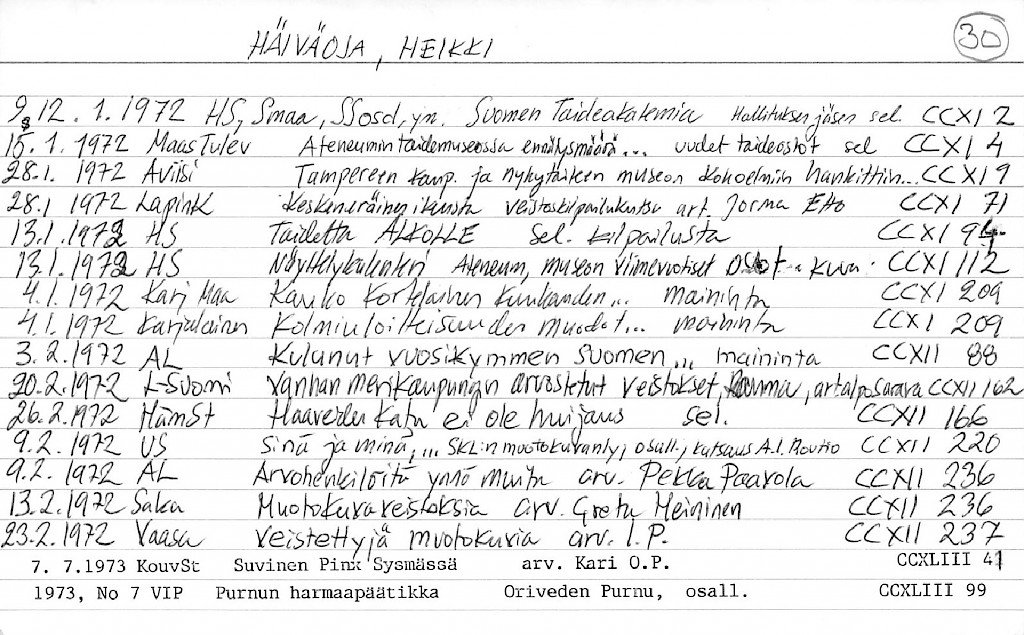 HÄIVÄOJA, HEIKKI
30
9, 12. 1. 1972 HS, Smaa, SSosd, ym. Suomen Taideakatemia Hallituksen jäsen sel. CCXI 2
15. 1. 1972 MaasTulev Ateneumin taidemuseossa ennätysmäärä... uudet taideostot sel CCXI 4
28.1. 1972 Aviisi Tampereen kaup. ja nykytaiteen museon kokoelmiin hankittiin... CCXI 9
28.1 1972 LapinK Keskeneräinen veistoskilpailukutsu art. Jorma Etto CCXI 71
13.1.1972 HS Taidetta ALKOLLE sel. kilpailusta CCXI 94
13.1.1972 HS Näyttelykalenteri Ateneum, museon viimevuotiset kuva CCXI 112
4.1. 1972 Karj Maa Kauko Kortelainen kuukauden... maininta CCXI 209
4.1. 1972 Karjalainen Kolmiulotteisuuden muodot... maininta CCXI 209
3. 2. 1972 AL Kulunut vuosikymmen Suomen... maininta CCXII 88
20.2.1972 L-Suomi Vanhan merikaupungin arvostetut veistokset, Rauma, CCXII 162
26.2.1972 HämSt Haaveiden katu ei ole huijaus sel. CCXII 166
9.2. 1972 US Sinä ja minä,... SKL:n muotokuvanäytt., osall., katsaus A.I. Routio CCXII 220
9.2. 1972 AL Arvohenkilöitä ynnä muita arv. Pekka Paavola CCXII 236
13.2.1972 SaKa Muotokuvaveistoksia arv. Greta Heininen CCXII 236
23.2. 1972 Vaasa Veistettyjä muotokuvia arv. I.P. CCXII 237
7. 7.1973 KouvSt Suvinen Pinx Sysmässä arv. Kari O.P. CCXLIII 41
1973, No 7 VIP Purnun harmaapäätikka Oriveden Purnu, osall. CCXLIII 99